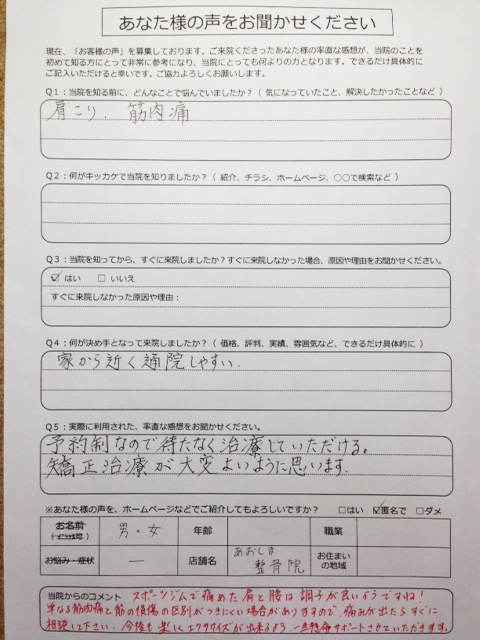 あなた様の声をお聞かせください
現在、「お客様の声」を募集しております。ご来院くださったあなた様の率直な感想が、当院のことを
初めて知る方にとって非常に参考になり、当院にとっても何よりの力となります。できるだけ具体的に
ご記入いただけると幸いです。ご協力よろしくお願いします。
Q1:当院を知る前に、どんなことで悩んでいましたか?(気になっていたこと、解決したかったことなど)
肩こり、筋肉痛
Q2:何がキッカケで当院を知りましたか?(紹介、チラシ、ホームページ、○○で検索など)
Q3:当院を知ってから、すぐに来院しましたか?すぐに来院しなかった場合、原因や理由をお聞かせください。
☑ はい □ いいえ
すぐに来院しなかった原因や理由:
Q4:何が決め手となって来院しましたか?(価格、評判、実績、雰囲気など、できるだけ具体的に)
家から近く通院しやすい.
Q5:実際に利用された、率直な感想をお聞かせください。
予約制なので待たなく治療していただける。
矯正治療が大変よいように思います.
※あなた様の声を、ホームページなどでご紹介してもよろしいですか? □はい ☑匿名で □ダメ
お名前 男・女 年齢 職業
お悩み・症状 ー 店舗名 あおしま整骨院 お住まいの地域
当院からのコメント スポーツジムで痛めた肩と膝は調子が良いようですね!
単なる筋肉痛と筋の損傷の区別がつきにくい場合がありますので、痛みが出たらすぐに
相談して下さい。今後も楽しくエクササイズが出来るよう一生懸命サポートさせていただきます。